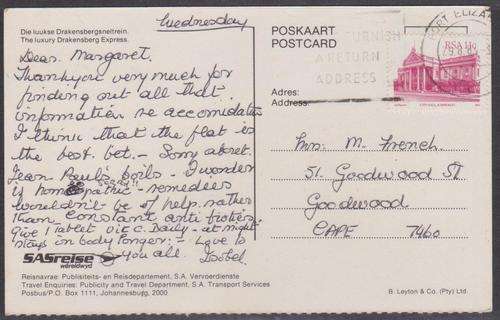 Wednesday
Die luukse Drakensbergsneltrein.
The luxury Drakensberg Express.
Dear Margaret.
Thankyou very much for
finding out all that
information re accomodation
I think that the flat is
the best bet. - Sorry about
Jean Paul's boils - I wonder
is homeopathic remedees
wouldn't be of help rather
than constant anti biotics
Give 1 tablet vit C. Daily - at night
stays in body longer. - Love to
you all. Isobel.
SASreise
wêreldwyd
Reisnavrae: Publisiteits- en Reisdepartement, S.A. Vervoerdienste
Travel Enquiries: Publicity and Travel Department, S.A. Transport Services
Posbus/P.O. Box 1111, Johannesburg, 2000
POSKAART
POSTCARD
FURNISH
A RETURN
ADDRESS
PORT ELIZA
RSA 14c
Adres:
Address:
Mrs. M. French
51. Goodwood St
Goodwood
CAPE 7460
B. Leyton & Co. (Pty) Ltd